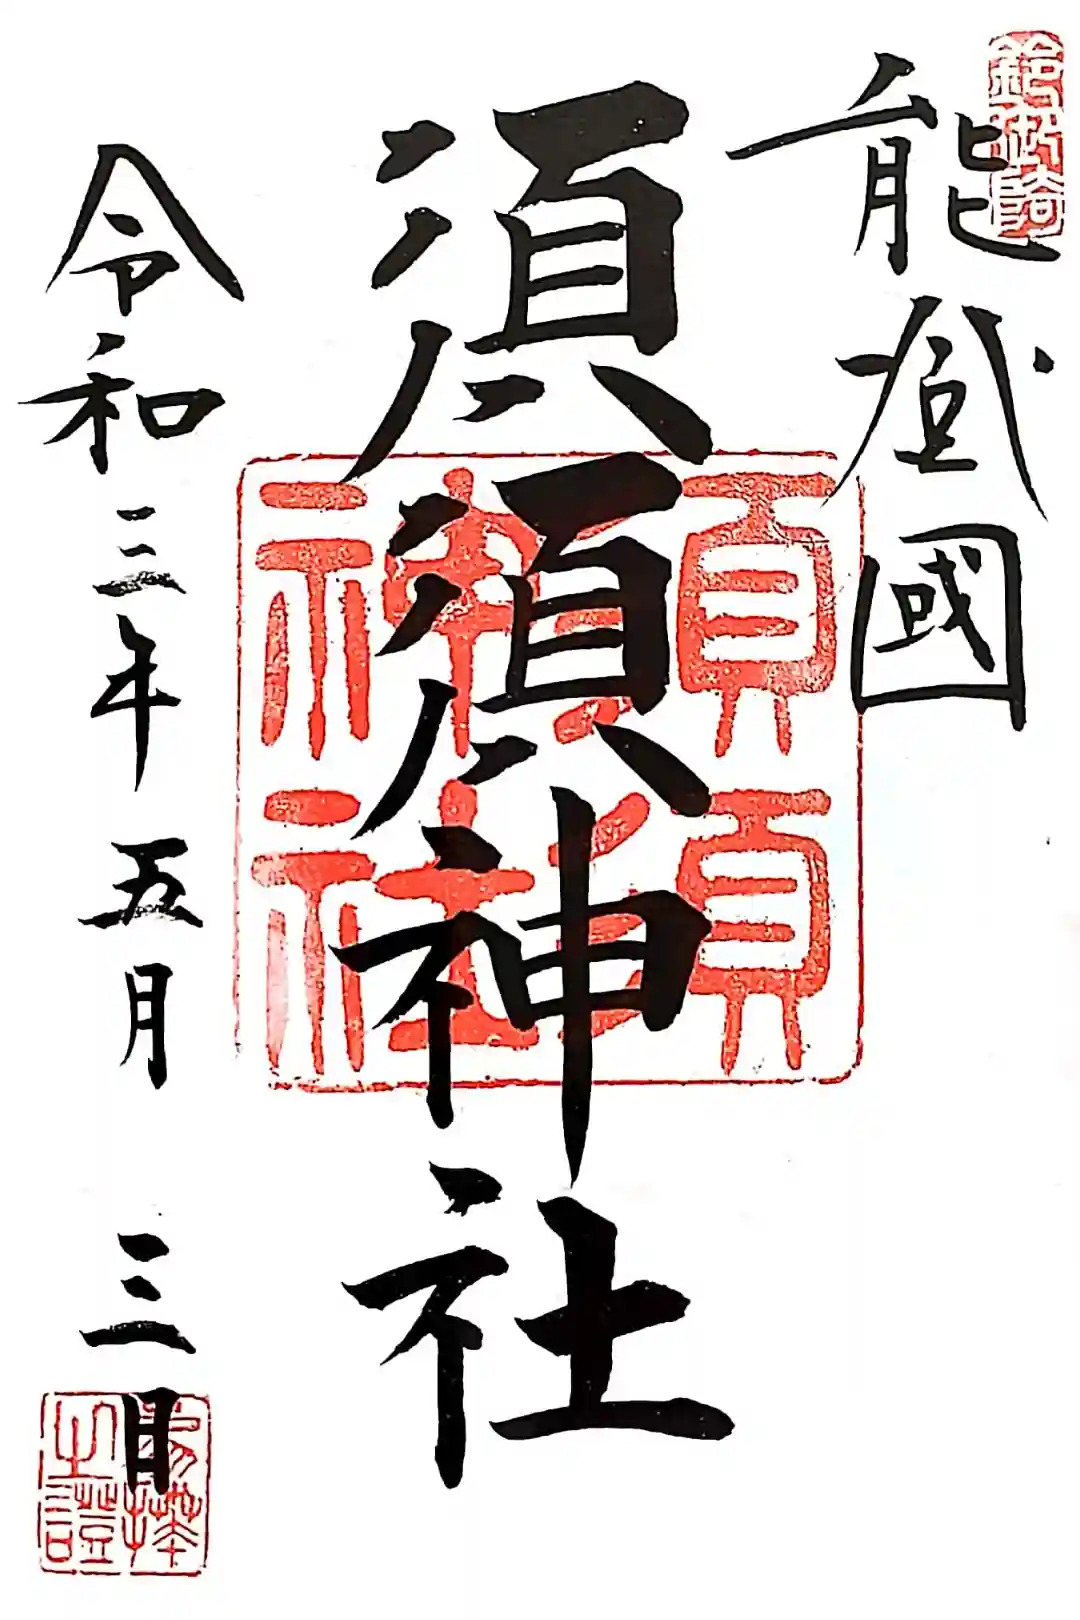 能登國
須須神社
須須
神社
令和三年五月三日